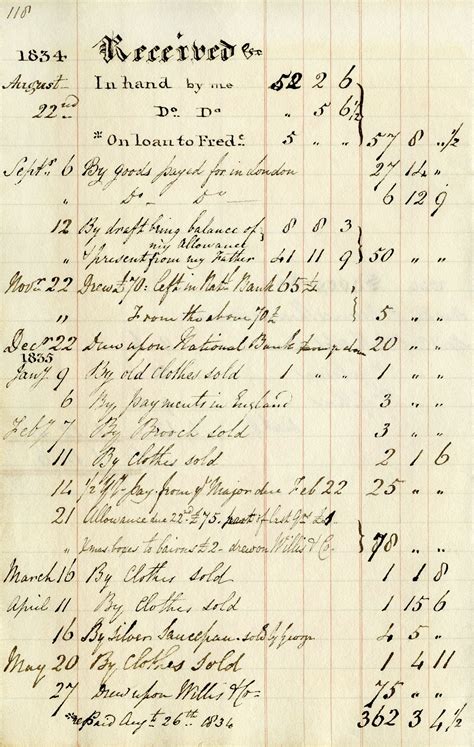 118
1834 Received &c
August In hand by me 52 2 6
22nd Do. Do " 5 6 1/2
*On loan to Fredc. 5 " " 57 8 " 1/2
Septr 6 By goods payed for in London 27 14 "
" Do - Do 6 12 9
12 By draft being balance of my allowance 8 8 3
" & present from my Father 41 11 9 50 " "
Novr 22 Drew £70: left in Natl. Bank 65£
" From the above 70£ 5 " "
Decr 22 Drew upon National Bank 20 " "
1835
Jany. 9 By old clothes sold 1 " " 1 " "
6 By payments in England 3 " "
Feby 7 By Brooch sold 3 " "
11 By clothes sold 2 1 6
14 1/2 Yr Pay from ye Major due Feb 22 25 " "
21 Allowance due 22d £75. part of last £1
" Xmas boxes to bairns £2 - drew on Willis & Co. 78 " "
March 16 By Clothes sold 1 1 8
April 11 By Clothes sold 1 15 6
16 By Silver Saucepan sold by George 4 5 "
May 20 By Clothes sold 1 4 11
27 Drew upon Willis & Co 75 " "
*repaid Augt 26th 1834 362 3 4 1/2